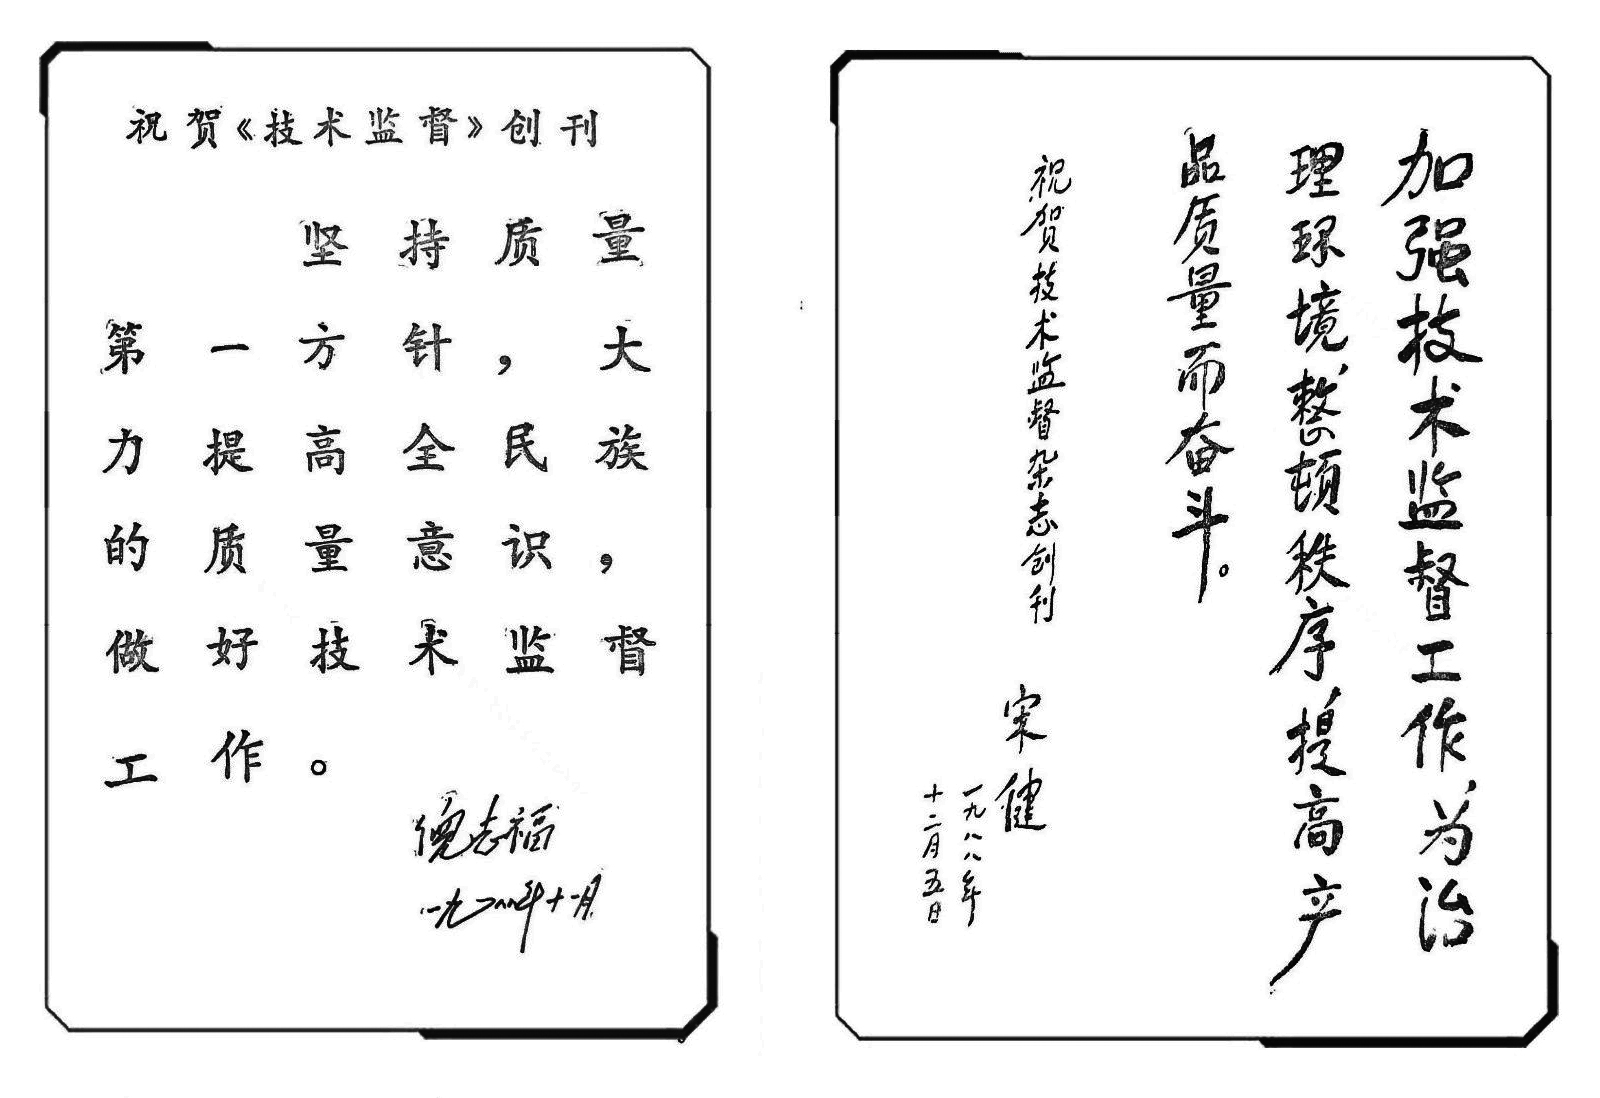 祝贺《技术监督》创刊
坚持质量
第一方针，大
力提高全民族
的质量意识，
做好技术监督
工作。
倪志福
一九八八年十一月
加强技术监督工作，为治
理环境、整顿秩序提高产
品质量而奋斗。
祝贺技术监督杂志创刊
宋健
一九八八年
十二月五日